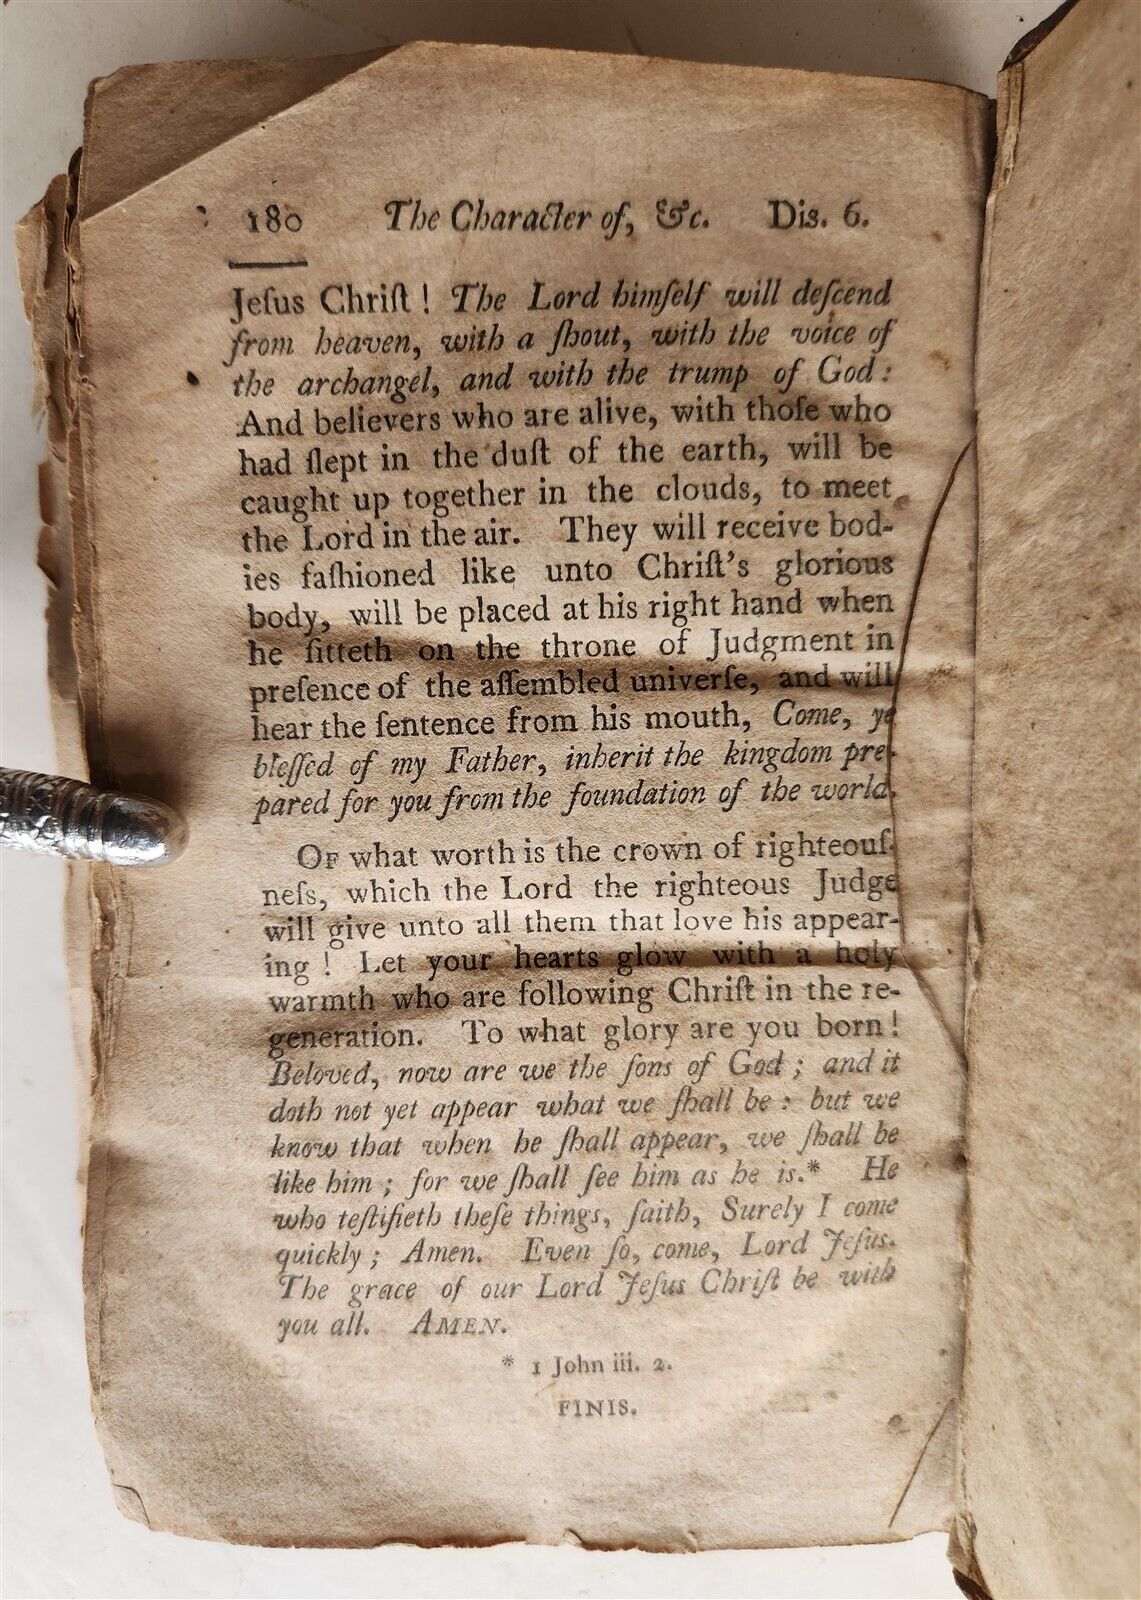 180 The Character of, &c. Dis. 6.
Jeſus Chriſt ! The Lord himſelf will deſcend
from heaven, with a ſhout, with the voice of
the archangel, and with the trump of God :
And believers who are alive, with thoſe who
had ſlept in the duſt of the earth, will be
caught up together in the clouds, to meet
the Lord in the air. They will receive bod-
ies faſhioned like unto Chriſt's glorious
body, will be placed at his right hand when
he ſitteth on the throne of Judgment in
preſence of the aſſembled univerſe, and will
hear the ſentence from his mouth, Come, ye
bleſſed of my Father, inherit the kingdom pre-
pared for you from the foundation of the world.
OF what worth is the crown of righteouſ-
neſs, which the Lord the righteous Judge
will give unto all them that love his appear-
ing ! Let your hearts glow with a holy
warmth who are following Chriſt in the re-
generation. To what glory are you born !
Beloved, now are we the ſons of God ; and it
doth not yet appear what we ſhall be : but we
know that when he ſhall appear, we ſhall be
like him ; for we ſhall ſee him as he is.* He
who teſtifieth theſe things, ſaith, Surely I come
quickly ; Amen. Even ſo, come, Lord Jeſus.
The grace of our Lord Jeſus Chriſt be with
you all. AMEN.
* 1 John iii. 2.
FINIS.